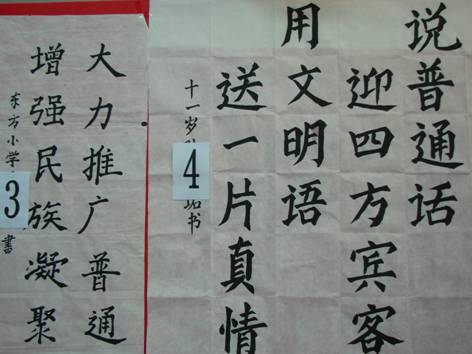 说普通话
迎四方宾客
用文明语
送一片真情
十一岁
书
4
大力推广普通
增强民族凝聚
东方小学
書
3